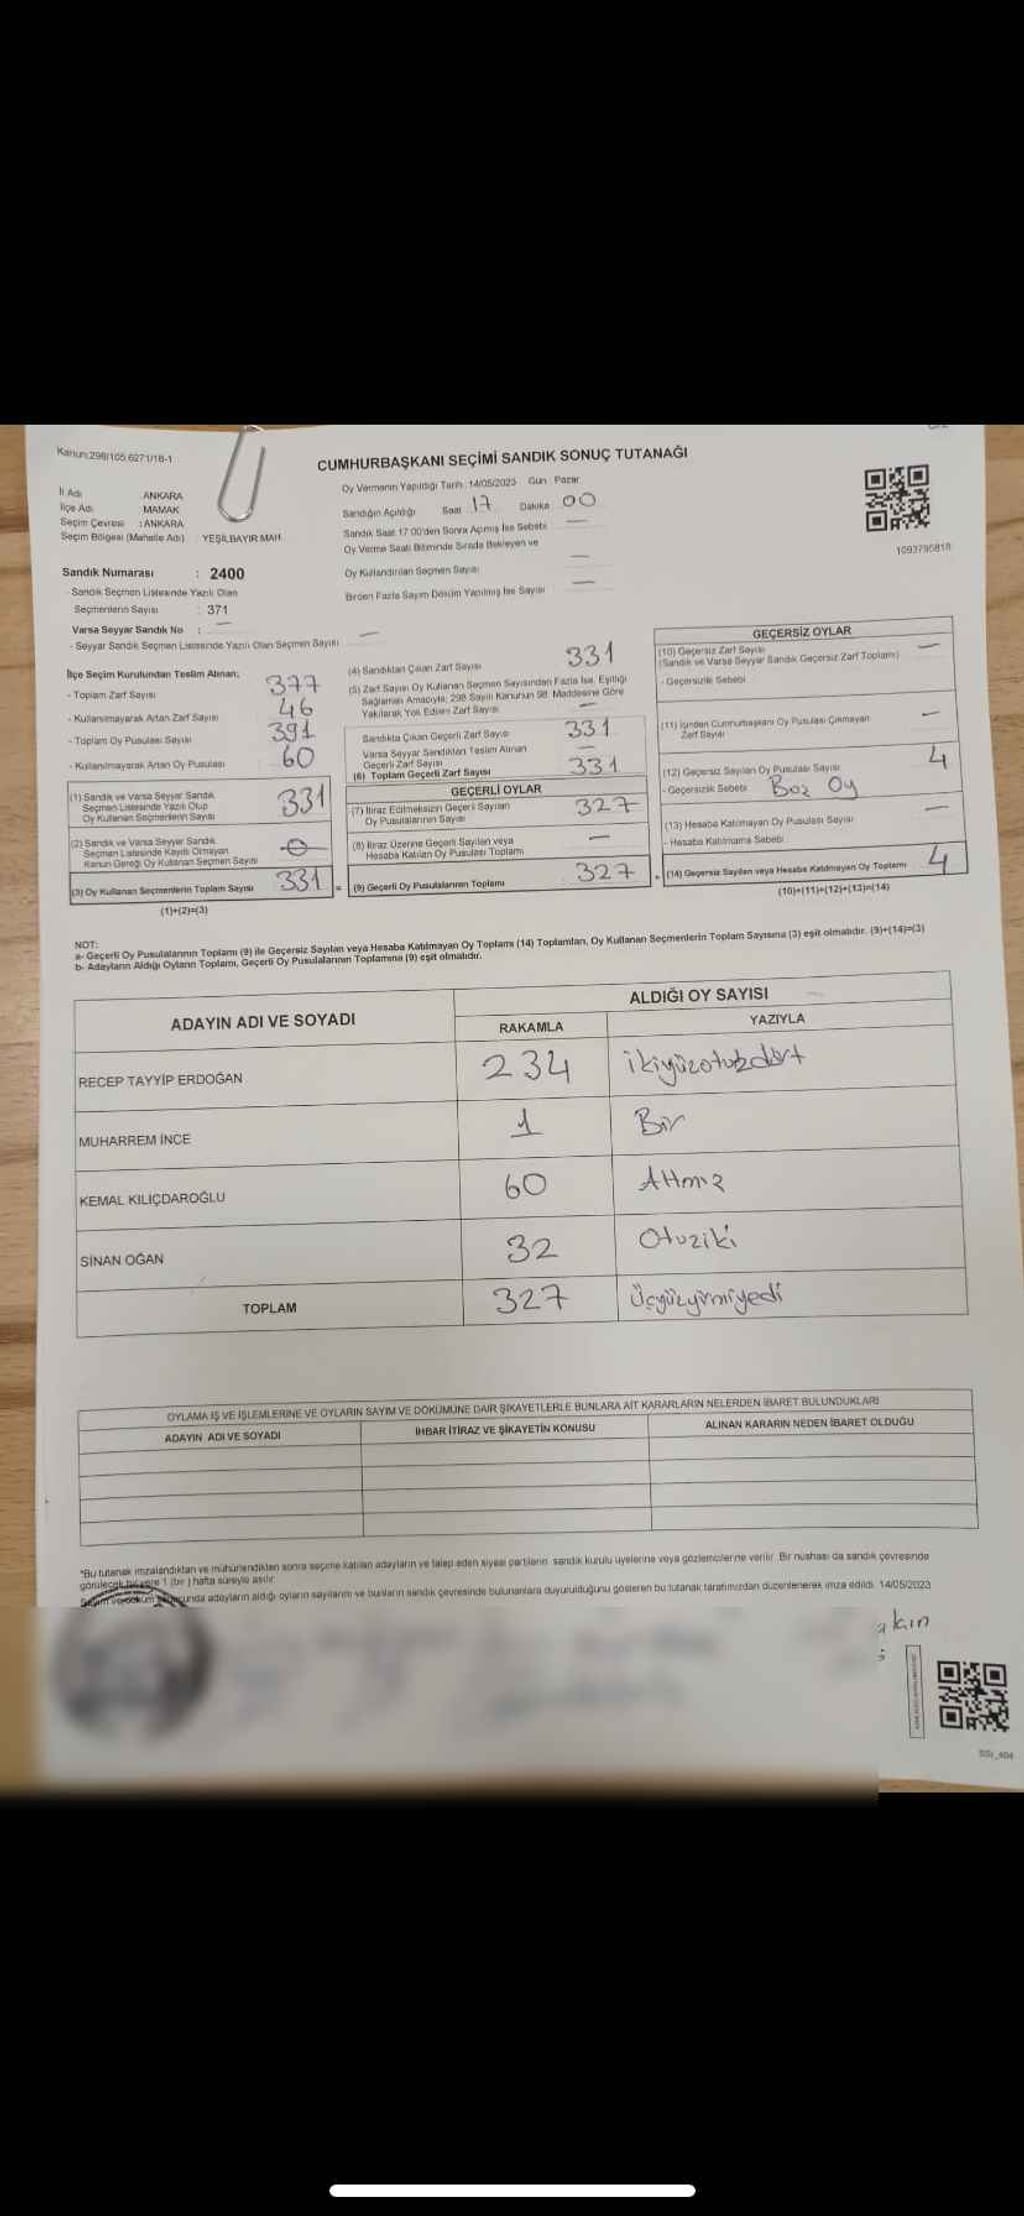 Kanun:298/105.6271/18-1
CUMHURBAŞKANI SEÇİMİ SANDIK SONUÇ TUTANAĞI
İl Adı ANKARA
İlçe Adı MAMAK
Seçim Çevresi : ANKARA
Seçim Bölgesi (Mahalle Adı) YEŞİLBAYIR MAH.
Sandık Numarası : 2400
Sandık Seçmen Listesinde Yazılı Olan
Seçmenlerin Sayısı : 371
Varsa Seyyar Sandık No : —
- Seyyar Sandık Seçmen Listesinde Yazılı Olan Seçmen Sayısı —
Oy Vermenin Yapıldığı Tarih : 14/05/2023 Gün Pazar
Sandığın Açıldığı Saat 17 Dakika 00
Sandık Saat 17:00'den Sonra Açılmış İse Sebebi —
Oy Verme Saati Bitiminde Sırada Bekleyen ve
Oy Kullandırılan Seçmen Sayısı —
Birden Fazla Sayım Döküm Yapılmış İse Sayısı —
1093790818
İlçe Seçim Kurulundan Teslim Alınan;
- Toplam Zarf Sayısı 377
- Kullanılmayarak Artan Zarf Sayısı 46
- Toplam Oy Pusulası Sayısı 391
- Kullanılmayarak Artan Oy Pusulası 60
(1) Sandık ve Varsa Seyyar Sandık
Seçmen Listesinde Yazılı Olup
Oy Kullanan Seçmenlerin Sayısı 331
(2) Sandık ve Varsa Seyyar Sandık
Seçmen Listesinde Kayıtlı Olmayan
Kanun Gereği Oy Kullanan Seçmen Sayısı 0
(3) Oy Kullanan Seçmenlerin Toplam Sayısı 331 =
(1)+(2)=(3)
(4) Sandıktan Çıkan Zarf Sayısı 331
(5) Zarf Sayısı Oy Kullanan Seçmen Sayısından Fazla İse, Eşitliği
Sağlamak Amacıyla, 298 Sayılı Kanunun 98. Maddesine Göre
Yakılarak Yok Edilen Zarf Sayısı —
Sandıkta Çıkan Geçerli Zarf Sayısı 331
Varsa Seyyar Sandıktan Teslim Alınan
Geçerli Zarf Sayısı —
(6) Toplam Geçerli Zarf Sayısı 331
GEÇERLİ OYLAR
(7) İtiraz Edilmeksizin Geçerli Sayılan
Oy Pusulalarının Sayısı 327
(8) İtiraz Üzerine Geçerli Sayılan veya
Hesaba Katılan Oy Pusulası Toplamı —
(9) Geçerli Oy Pusulalarının Toplamı 327
GEÇERSİZ OYLAR
(10) Geçersiz Zarf Sayısı —
(Sandık ve Varsa Seyyar Sandık Geçersiz Zarf Toplamı)
- Geçersizlik Sebebi
(11) İçinden Cumhurbaşkanı Oy Pusulası Çıkmayan
Zarf Sayısı —
(12) Geçersiz Sayılan Oy Pusulası Sayısı 4
- Geçersizlik Sebebi Boz Oy
(13) Hesaba Katılmayan Oy Pusulası Sayısı —
- Hesaba Katılmama Sebebi
(14) Geçersiz Sayılan veya Hesaba Katılmayan Oy Toplamı 4
(10)+(11)+(12)+(13)=(14)
NOT:
a- Geçerli Oy Pusulalarının Toplamı (9) ile Geçersiz Sayılan veya Hesaba Katılmayan Oy Toplamı (14) Toplamları, Oy Kullanan Seçmenlerin Toplam Sayısına (3) eşit olmalıdır. (9)+(14)=(3)
b- Adayların Aldığı Oyların Toplamı, Geçerli Oy Pusulalarının Toplamına (9) eşit olmalıdır.
ADAYIN ADI VE SOYADI
ALDIĞI OY SAYISI
RAKAMLA YAZIYLA
RECEP TAYYİP ERDOĞAN 234 ikiyüzotuzdört
MUHARREM İNCE 1 Bir
KEMAL KILIÇDAROĞLU 60 Altmış
SİNAN OĞAN 32 Otuziki
TOPLAM 327 Üçyüzyirmiyedi
OYLAMA İŞ VE İŞLEMLERİNE VE OYLARIN SAYIM VE DÖKÜMÜNE DAİR ŞİKAYETLERLE BUNLARA AİT KARARLARIN NELERDEN İBARET BULUNDUKLARI
ADAYIN ADI VE SOYADI İHBAR İTİRAZ VE ŞİKAYETİN KONUSU ALINAN KARARIN NEDEN İBARET OLDUĞU
*Bu tutanak imzalandıktan ve mühürlendikten sonra seçime katılan adayların ve talep eden siyasi partilerin sandık kurulu üyelerine veya gözlemcilerine verilir. Bir nüshası da sandık çevresinde
görülecek bir yere 1 (bir) hafta süreyle asılır.
Sayım ve döküm sonucunda adayların aldığı oyların sayılarını ve bunların sandık çevresinde bulunanlara duyurulduğunu gösteren bu tutanak tarafımızdan düzenlenerek imza edildi. 14/05/2023
akın